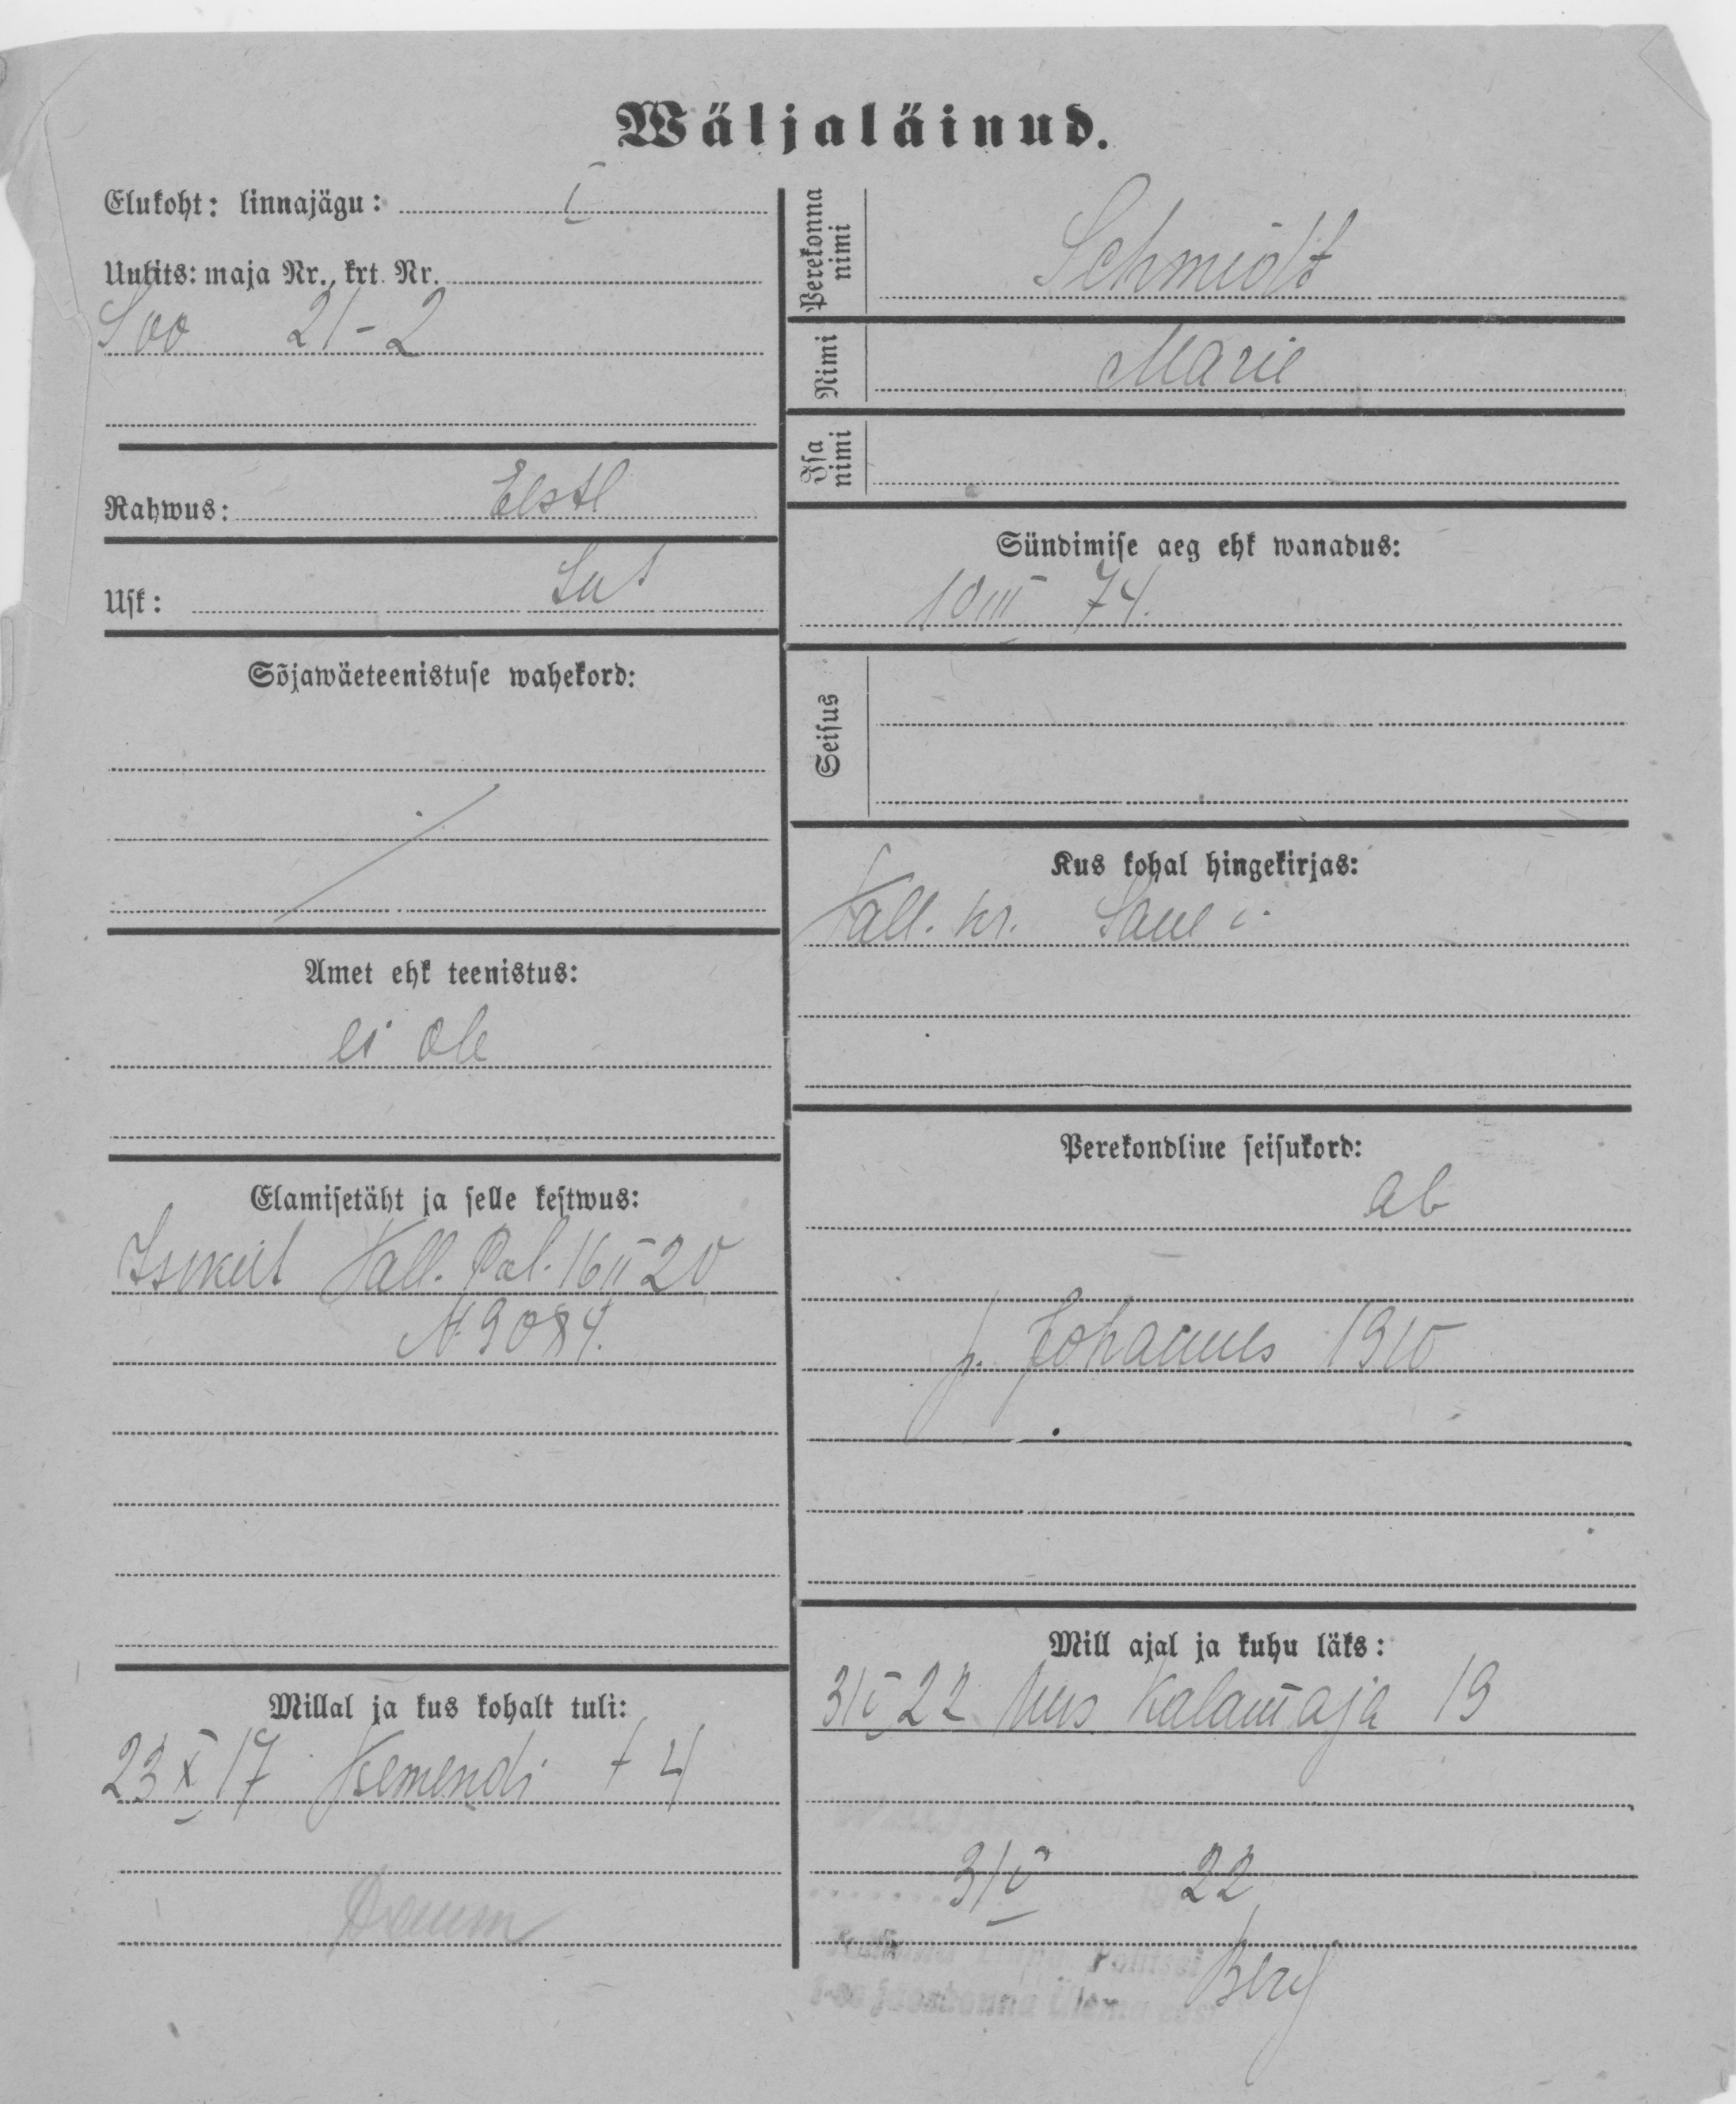 Wäljaläinud.
Elukoht: linnajägu: I
Uulits: maja Nr., krt. Nr.
Soo 21-2
Rahwus: Eestl
Usk: Lut
Sõjawäeteenistuse wahekord:
Amet ehk teenistus:
ei ole
Elamisetäht ja selle kestwus:
Isikut Tall. Pol. 16 II 20
№ 9084.
Millal ja kus kohalt tuli:
23 X 17 4
Perekonna nimi
Schmidt
Nimi
Marie
Isa nimi
Sündimise aeg ehk wanadus:
10 III 74.
Seisus
Kus kohal hingekirjas:
Tall. kr.
Perekondline seisukord:
ab
p. Johannes 1910
Mill ajal ja kuhu läks:
31 V 22 Uus Kalamaja 19
31 V 22
Politsei
Berg